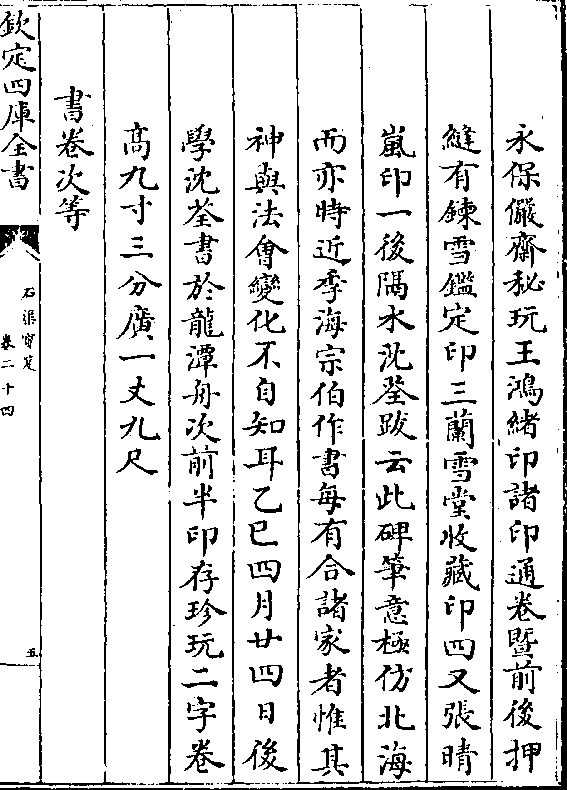 永保儼齋秘玩王鴻緒印諸印通卷暨前後押
縫有鍊雪鑑定印三蘭雪堂收藏印四又張晴
嵐印一後隔水沈荃跋云此碑筆意極仿北海
而亦時近季海宗伯作書每有合諸家者惟其
神與法會變化不自知耳乙巳四月廿四日後
學沈荃書於龍潭舟次前半印存珍玩二字卷
高九寸三分廣一丈九尺
書卷次等
欽定四庫全書
石渠寶笈
卷二十四
五